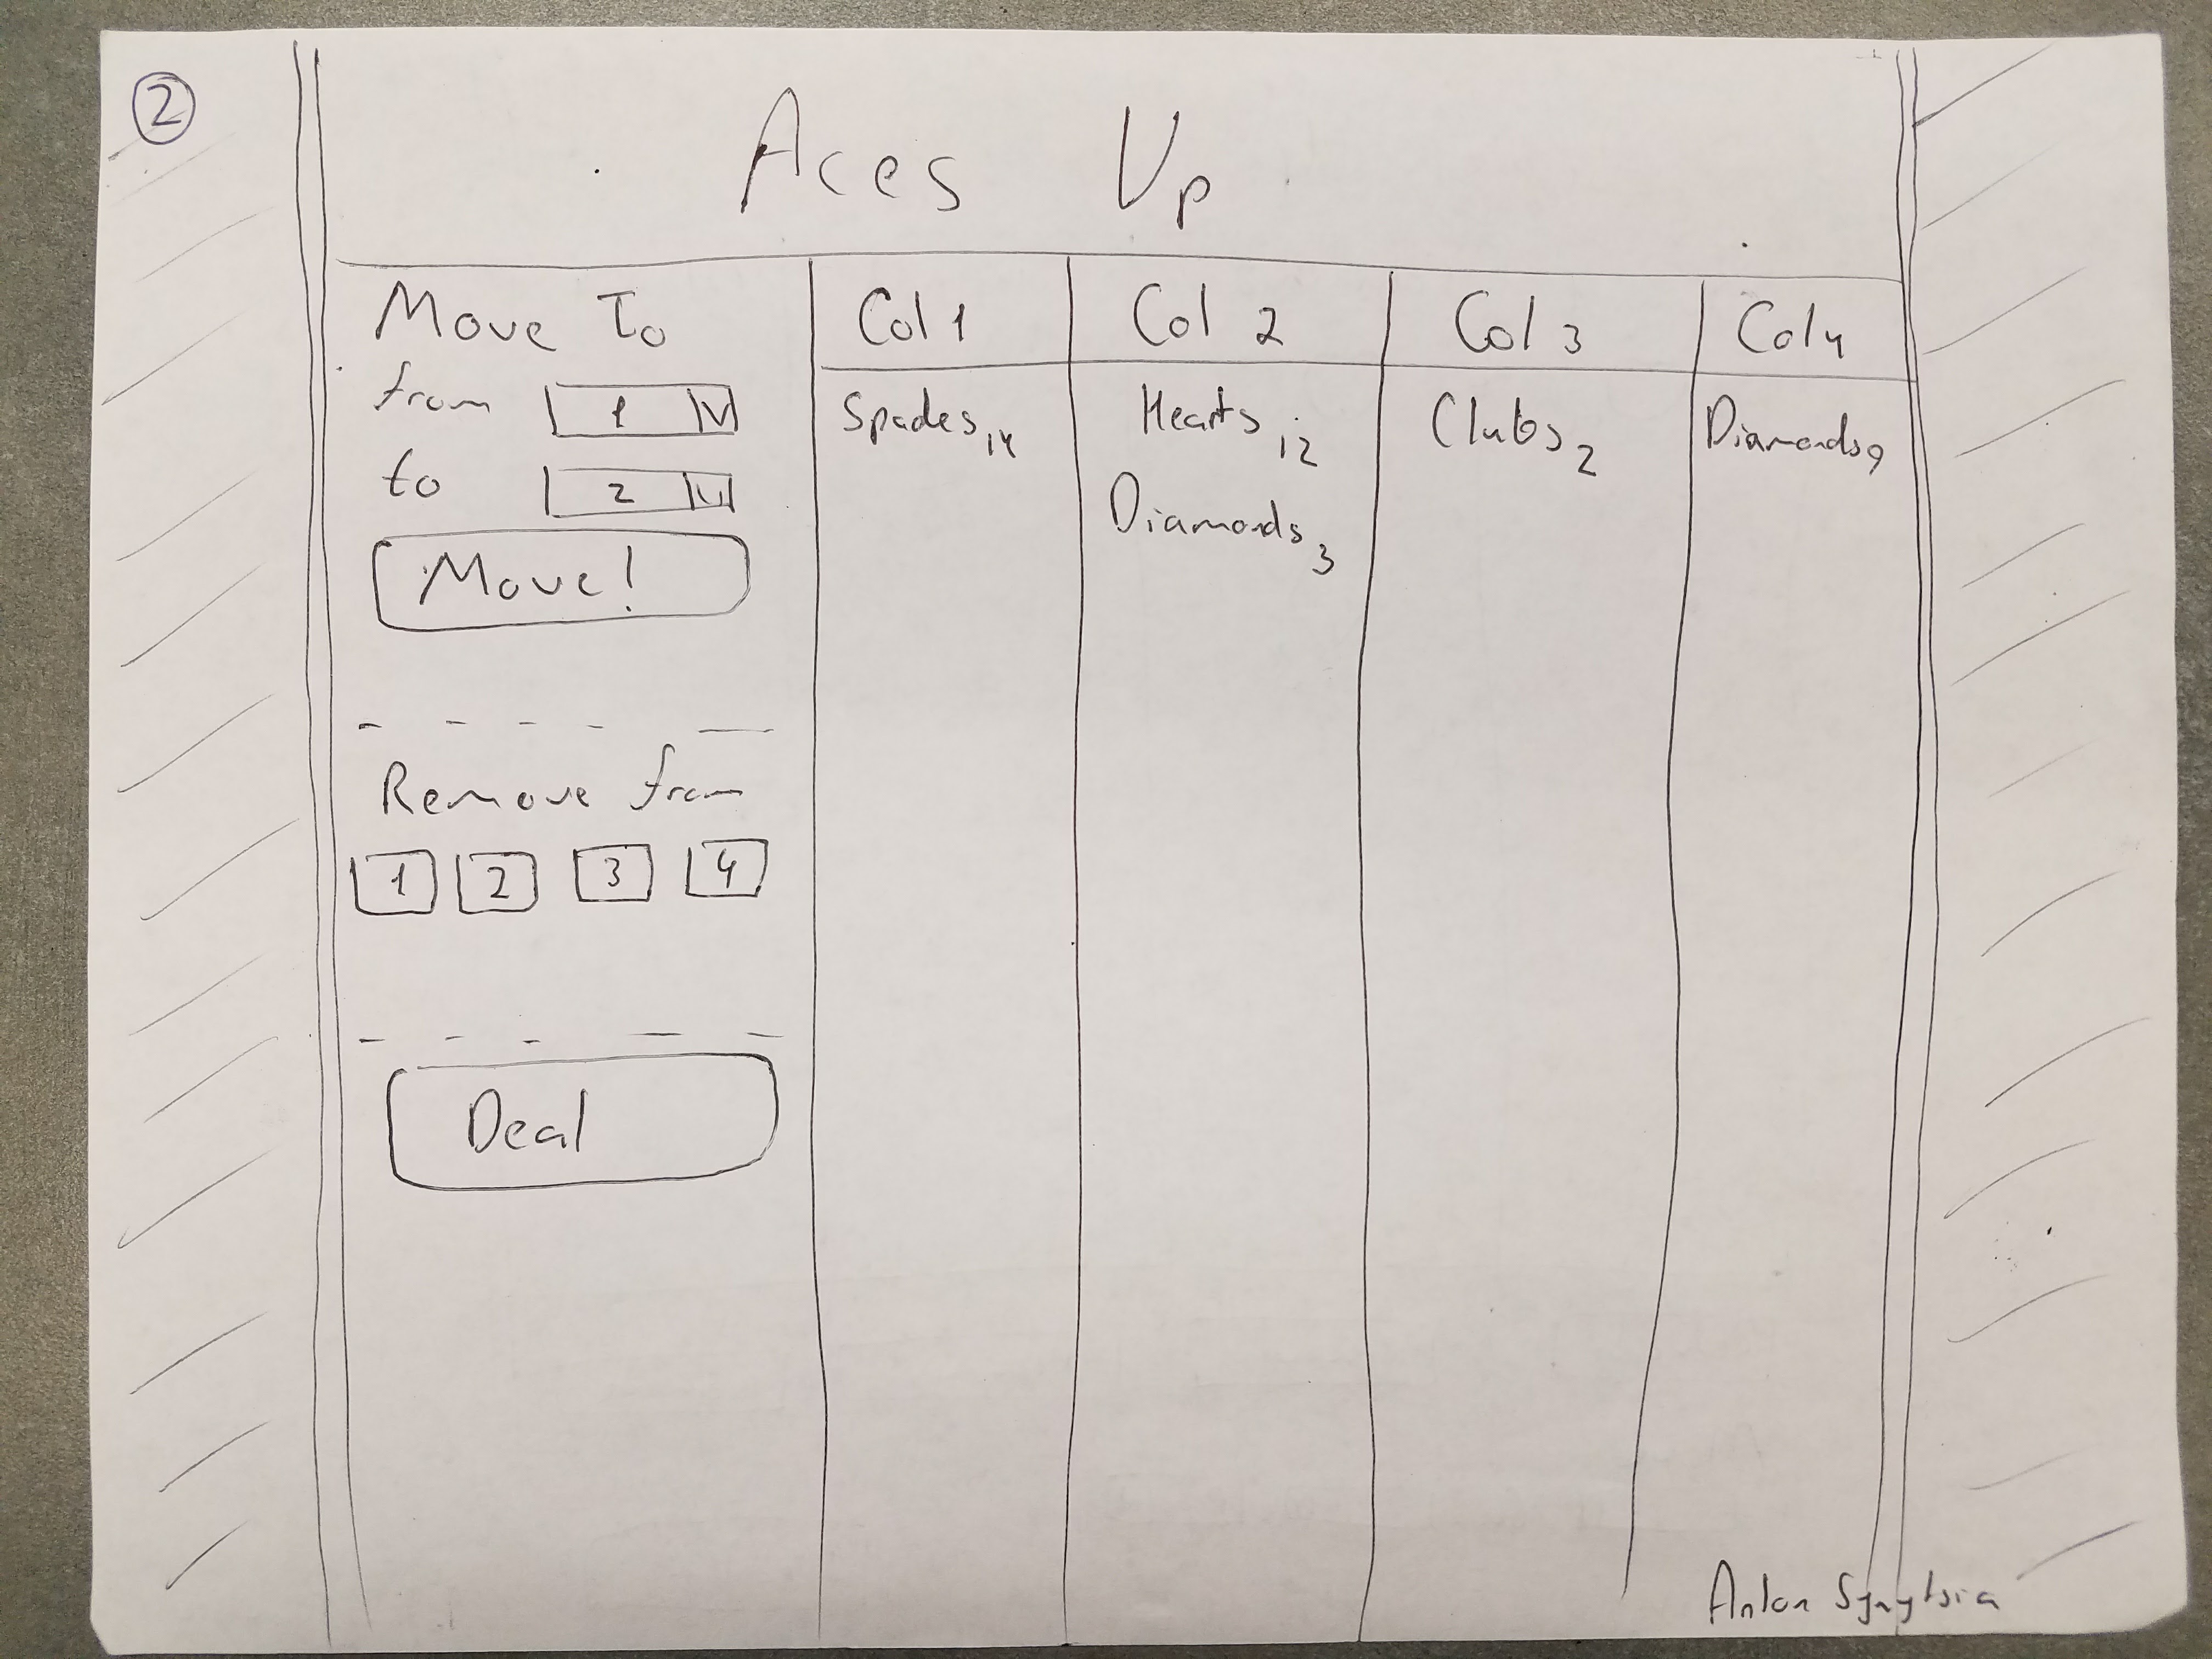 2
Aces Up
Move To
from 1 V
to 2
Move!
Remove from
1 2 3 4
Deal
Col 1 Col 2 Col 3 Col 4
Spades 14 Hearts 12 Clubs 2 Diamonds 9
Diamonds 3
Anton Synytsia